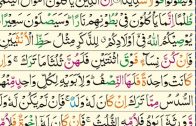 ظُلْمًا إِنَّمَا يَأْكُلُونَ فِي بُطُونِهِمْ نَارًا وَسَيَصْلَوْنَ سَعِيرًا
يُوصِيكُمُ اللَّهُ فِي أَوْلَادِكُمْ لِلذَّكَرِ مِثْلُ حَظِّ الْأُنثَيَيْنِ
فَإِن كُنَّ نِسَاءً فَوْقَ اثْنَتَيْنِ فَلَهُنَّ ثُلُثَا مَا تَرَكَ وَإِن
كَانَتْ وَاحِدَةً فَلَهَا النِّصْفُ وَلِأَبَوَيْهِ لِكُلِّ وَاحِدٍ مِّنْهُمَا
السُّدُسُ مِمَّا تَرَكَ إِن كَانَ لَهُ وَلَدٌ فَإِن لَّمْ يَكُن لَّهُ وَلَدٌ